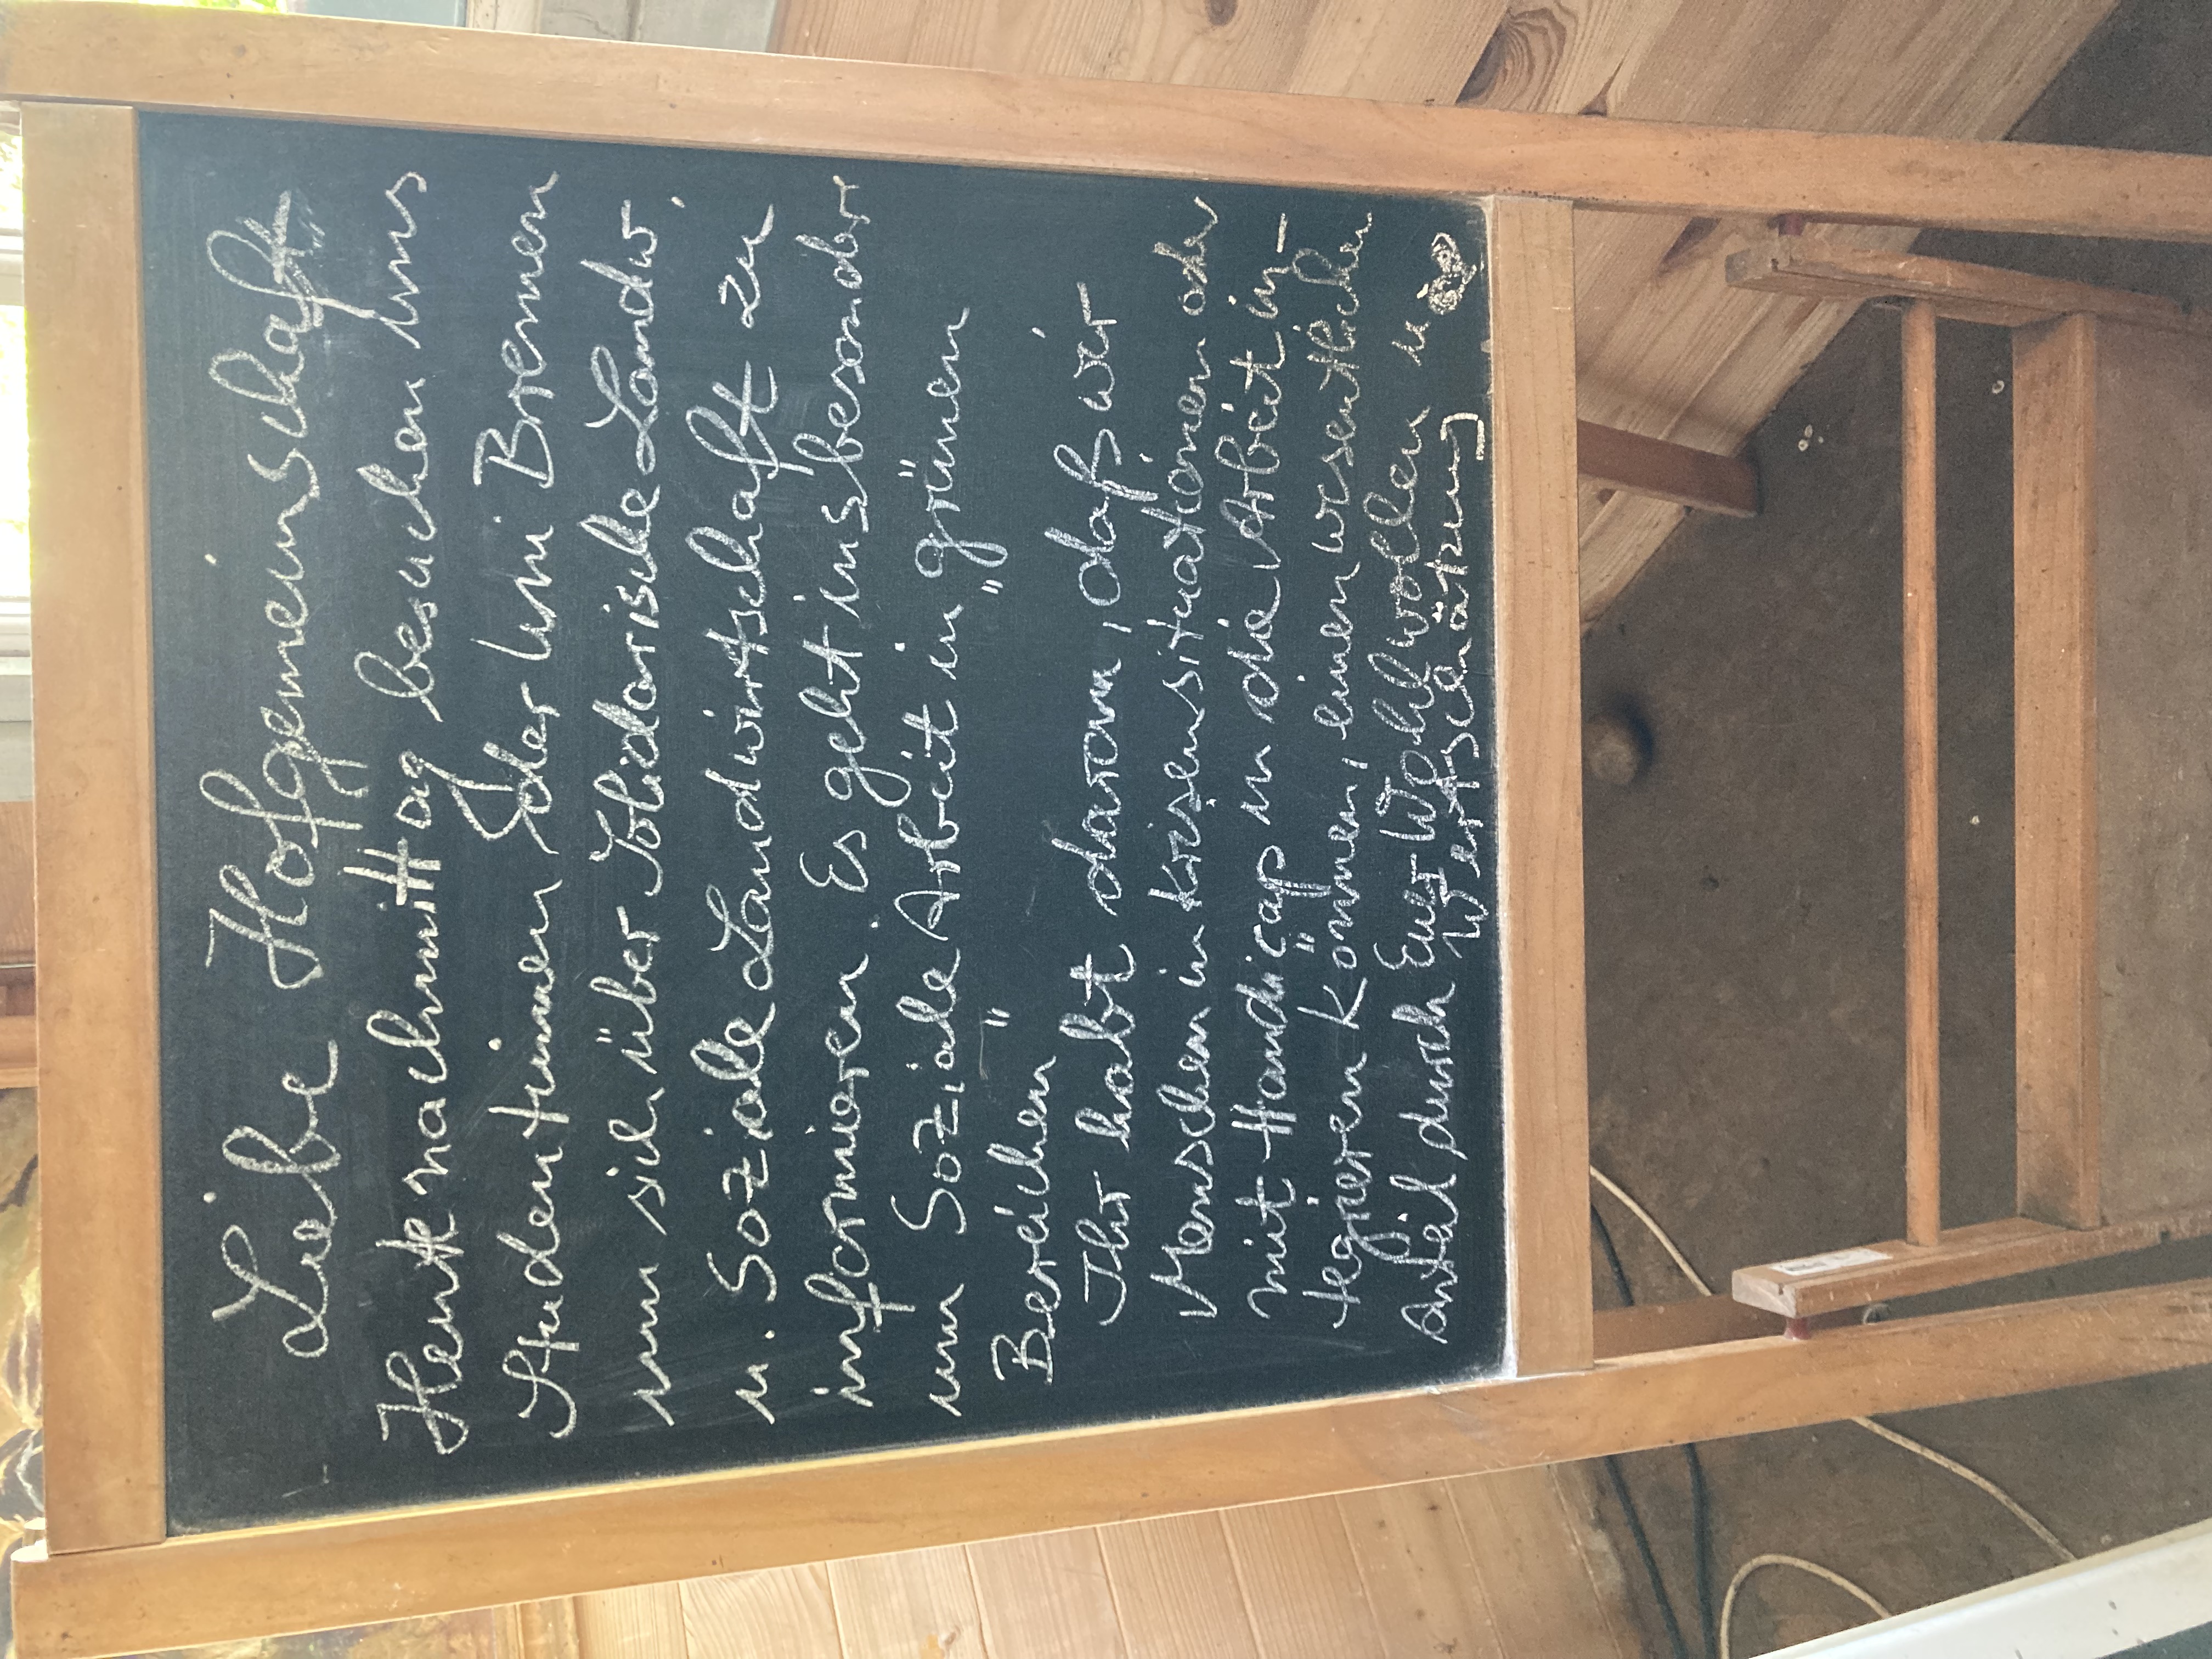 Liebe Hofgemeinschaft
Heute nachmittag besuchen uns
Studentinnen der Uni Bremen
um sich über Solidarische Landw.
u. Soziale Landwirtschaft zu
informieren. Es geht insbesondere
um Soziale Arbeit in "grünen
Bereichen"
Ihr habt daran, daß wir
Menschen in Krisensituationen oder
mit Handicap in die Arbeit in-
tegrieren können, einen wesentlichen
Anteil, durch Euer Wohlwollen u.
Wertschätzung